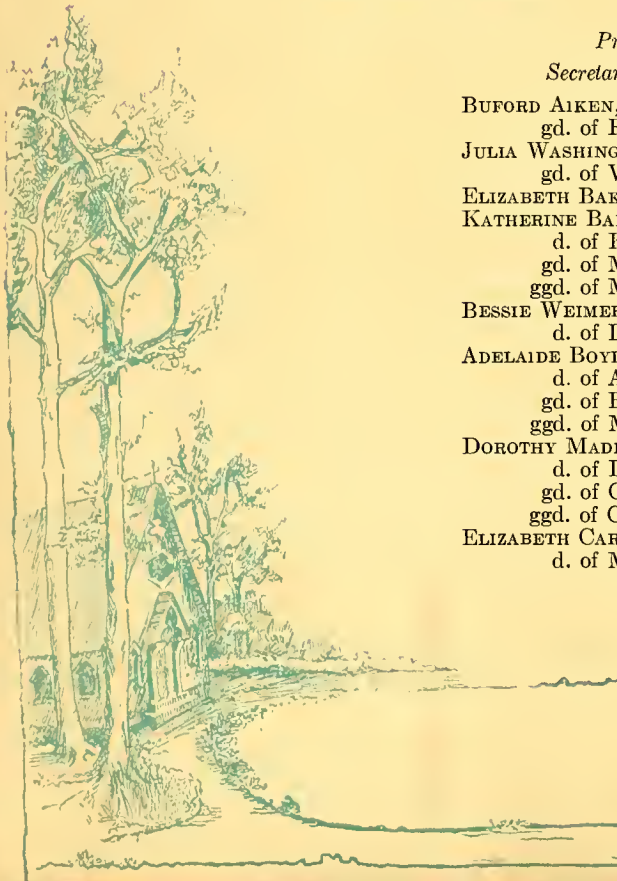 Secretar
BUFORD AIKEN,
gd. of
JULIA WASHING
gd. of
ELIZABETH BAK
KATHERINE BA
d. of
gd. of M
ggd. of M
BESSIE WEIMER
d. of
ADELAIDE BOY
d. of A
gd. of
ggd. of M
DOROTHY MAD
d. of
gd. of
ggd. of
ELIZABETH CAR
d. of M